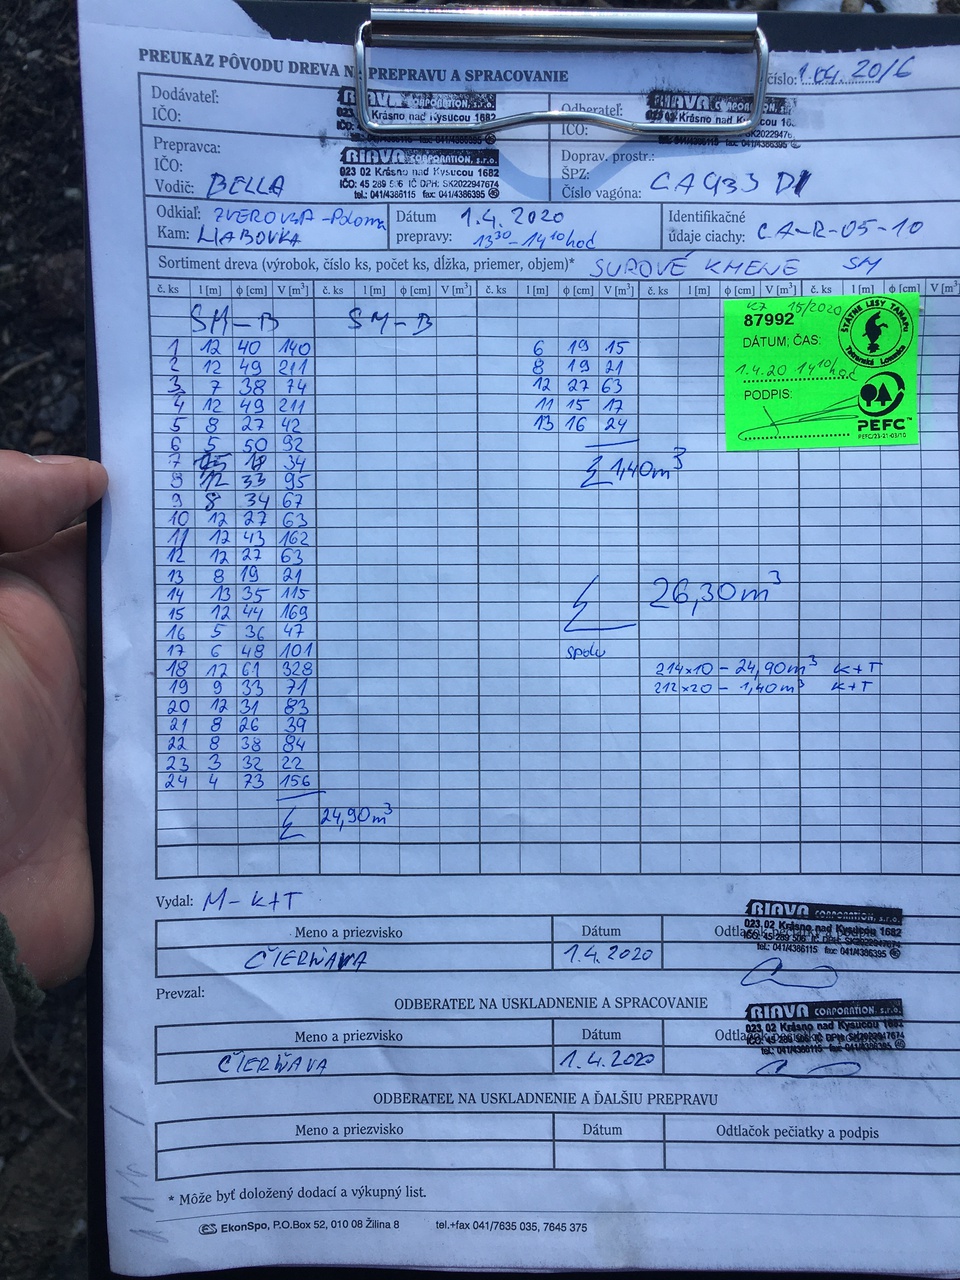 PREUKAZ PÔVODU DREVA NA PREPRAVU A SPRACOVANIE
číslo: 1.04.2016
Dodávateľ:
IČO:
RIAVA CORPORATION, s.r.o.
023 02 Krásno nad Kysucou 1682
tel.: 041/4386115 fax: 041/4386395
Odberateľ:
IČO:
RIAVA CORPORATION, s.r.o.
Krásno nad Kysucou
Prepravca:
IČO:
Vodič: BELLA
RIAVA CORPORATION, s.r.o.
023 02 Krásno nad Kysucou 1682
IČO: 45 289 506 IČ DPH: SK2022947674
tel.: 041/4386115 fax: 041/4386395
Doprav. prostr.:
ŠPZ:
Číslo vagóna: CA933 DI
Odkiaľ: ZVEROVKA-Poloma
Kam: LIABOVKA
Dátum 1.4. 2020
prepravy: 13 30 - 14 10 hod
Identifikačné
údaje ciachy: CA-R-05-10
Sortiment dreva (výrobok, číslo ks, počet ks, dĺžka, priemer, objem)* SUROVÉ KMENE SM
č. ks l [m] ϕ [cm] V [m³] č. ks l [m] ϕ [cm] V [m³] l [m] ϕ [cm] V [m³] č. ks l [m] ϕ [cm] V [m³] č. ks l [m] ϕ [cm] V [m³]
SM-B SM-B
1 12 40 140
2 12 49 211
3 7 38 74
4 12 49 211
5 8 27 42
6 5 50 92
7 18 34
8 12 33 95
9 8 34 67
10 12 27 63
11 12 43 162
12 12 27 63
13 8 19 21
14 13 35 115
15 12 44 169
16 5 36 47
17 6 48 101
18 12 61 328
19 9 33 71
20 12 31 83
21 8 26 39
22 8 38 84
23 3 32 22
24 4 73 156
Σ 24,90m³
6 19 15
8 19 21
12 27 63
11 15 17
13 16 24
Σ 1,40m³
Σ 26,30m³
spolu
214x10 - 24,90m³ K+T
212x20 - 1,40m³ K+T
K7 15/2020
87992
DÁTUM; ČAS:
1.4.20 14 10 hod
PODPIS:
ŠTÁTNE LESY TANAPU
Tatranská Lomnica
PEFC™
PEFC/23-21-03/10
Vydal: M-K+T
Meno a priezvisko Dátum Odtlačok pečiatky a podpis
ČIERŇAVA 1.4. 2020
RIAVA CORPORATION, s.r.o.
023 02 Krásno nad Kysucou 1682
IČO: 45 289 506 IČ DPH: SK2022947674
tel.: 041/4386115 fax: 041/4386395
Prevzal:
ODBERATEĽ NA USKLADNENIE A SPRACOVANIE
Meno a priezvisko Dátum Odtlačok
ČIERŇAVA 1.4. 2020
RIAVA CORPORATION, s.r.o.
023 02 Krásno nad Kysucou 1682
IČO: 45 289 506 IČ DPH: SK2022947674
tel.: 041/4386115 fax: 041/4386395
ODBERATEĽ NA USKLADNENIE A ĎALŠIU PREPRAVU
Meno a priezvisko Dátum Odtlačok pečiatky a podpis
* Môže byť doložený dodací a výkupný list.
ES EkonSpo, P.O.Box 52, 010 08 Žilina 8 tel.+fax 041/7635 035, 7645 375